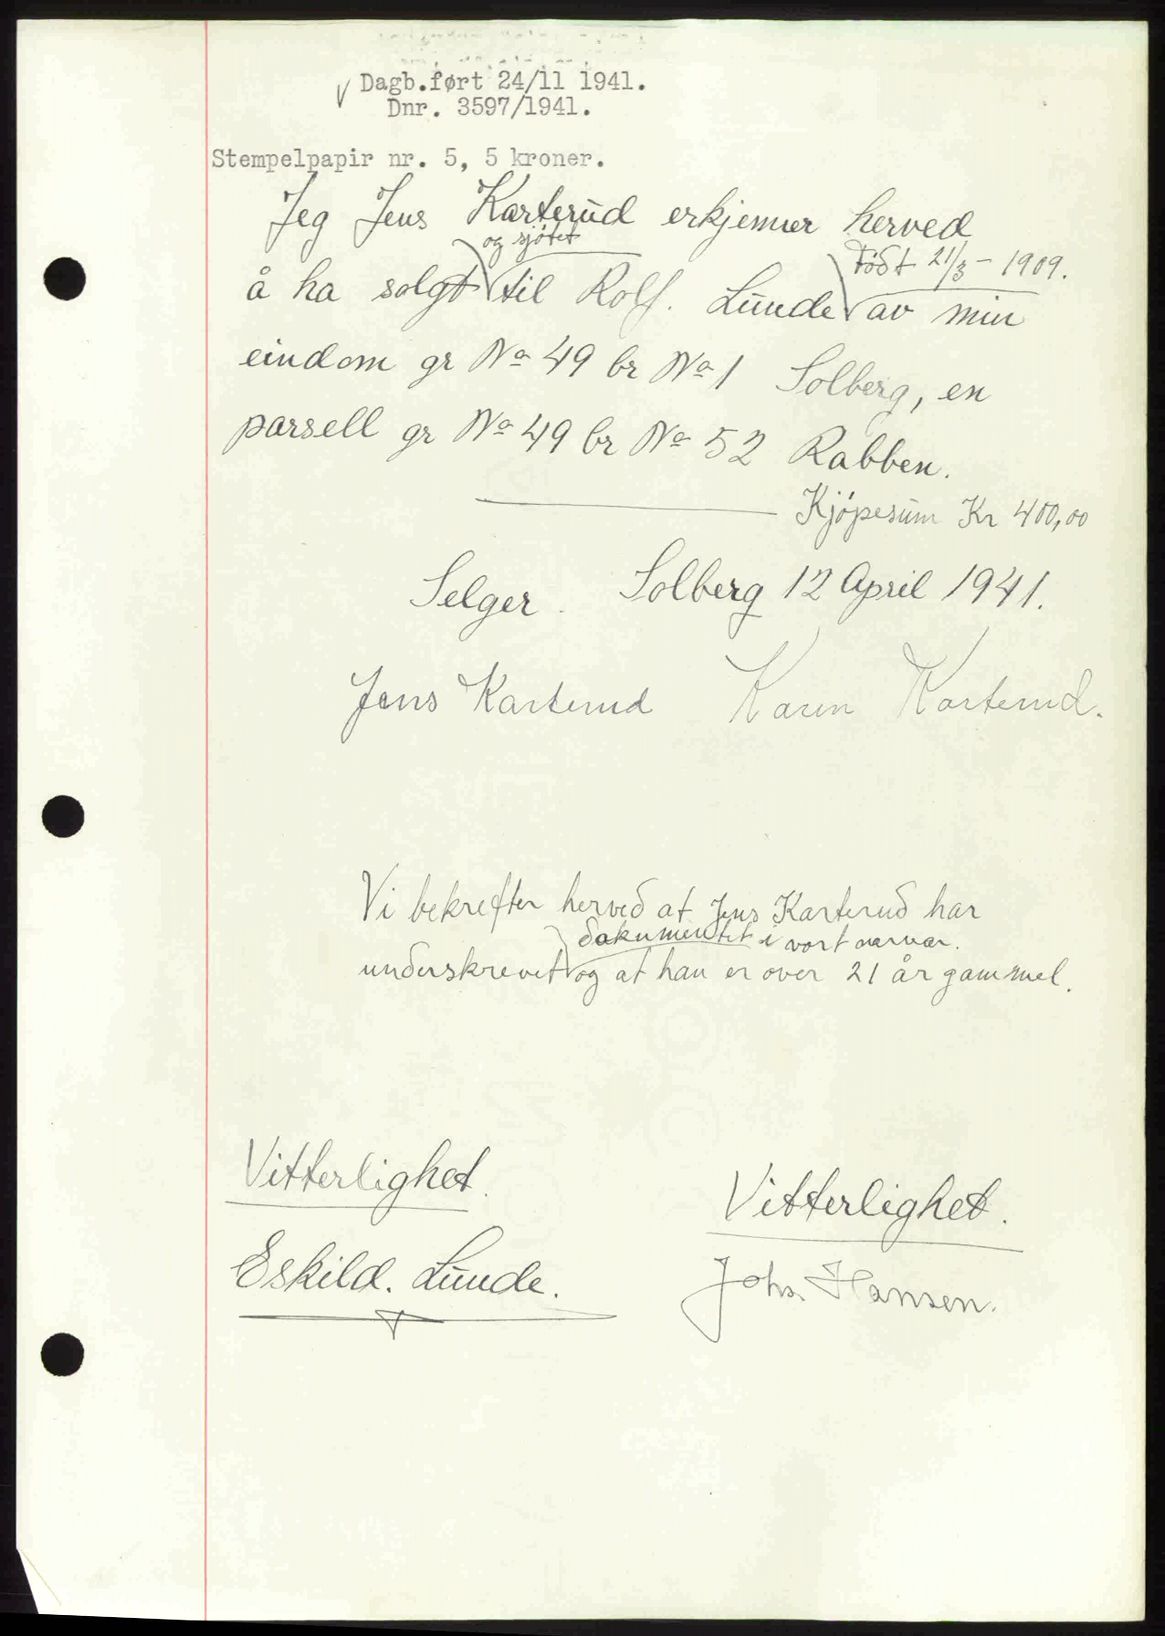 Dagb.ført 24/11 1941.
Dnr. 3597/1941.
Stempelpapir nr. 5, 5 kroner.
Jeg Jens Karterud erkjenner herved
og sjötet
födt 21/3 - 1909.
å ha solgt til Rolf. Lunde av min
eindom gr No 49 br No 1 Solberg, en
parsell gr No 49 br No 52 Rabben.
Kjöpesum Kr 400,00
Selger. Solberg 12 April 1941.
Jens Karterud Karen Karterud.
Vi bekrefter herved at Jens Karterud har
dokumentet i vort nærvær.
underskrevet og at han er over 21 år gammel.
Vitterlighet.
Vitterlighet.
Eskild. Lunde.
Johs. Hansen.